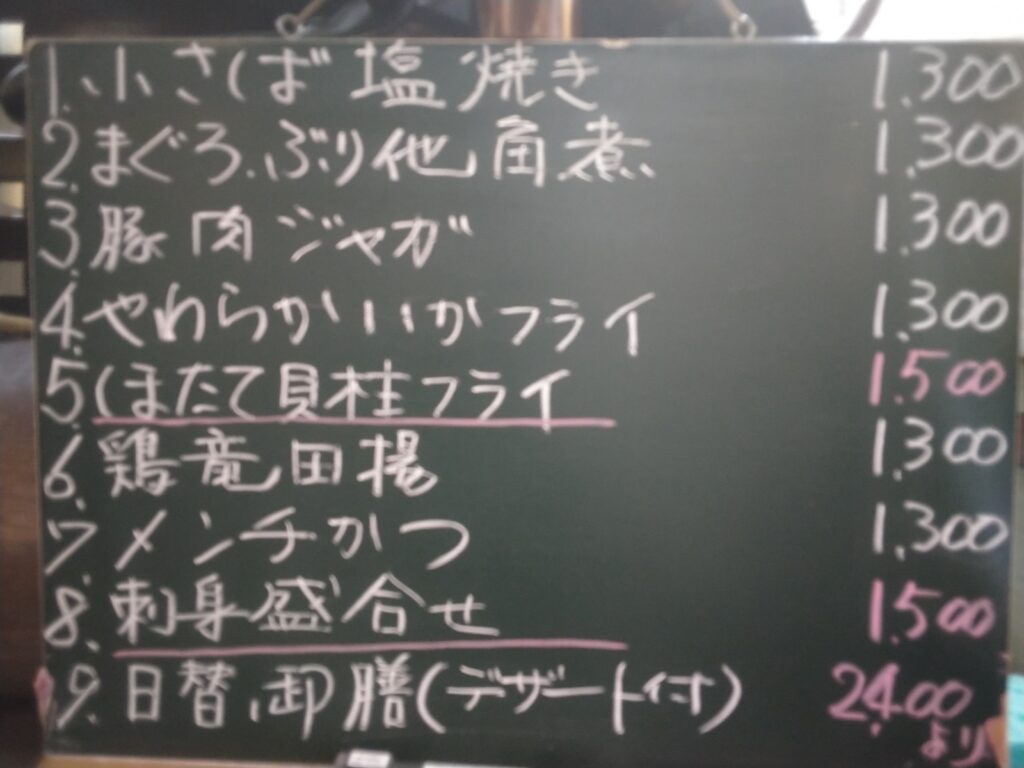 1. 小さば塩焼き 1.300
2. まぐろ.ぶり他角煮 1.300
3. 豚肉ジャガ 1.300
4. やわらかいかフライ 1.300
5. ほたて貝柱フライ 1.500
6. 鶏竜田揚 1.300
7. メンチかつ 1.300
8. 刺身盛合せ 1.500
9. 日替御膳(デザート付) 24.00
より